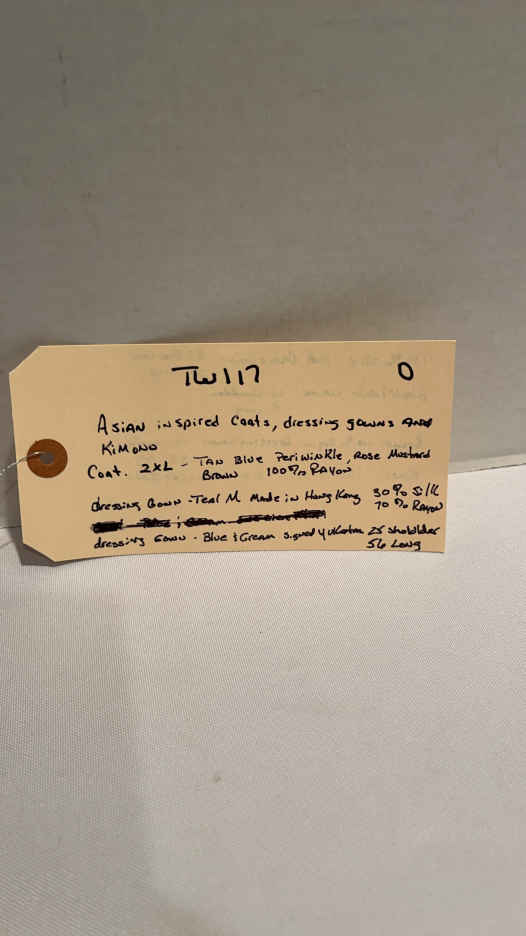 TW117 O
Asian inspired Coats, dressing gowns AND
Kimono
Coat. 2XL - Tan Blue Periwinkle, Rose Mustard
Brown 100% Rayon
dressing Gown - Teal M Made in Hong Kong 30% Silk
70% Rayon
dressing Gown - Blue & Cream signed Yukata 25 sholder
56 Long